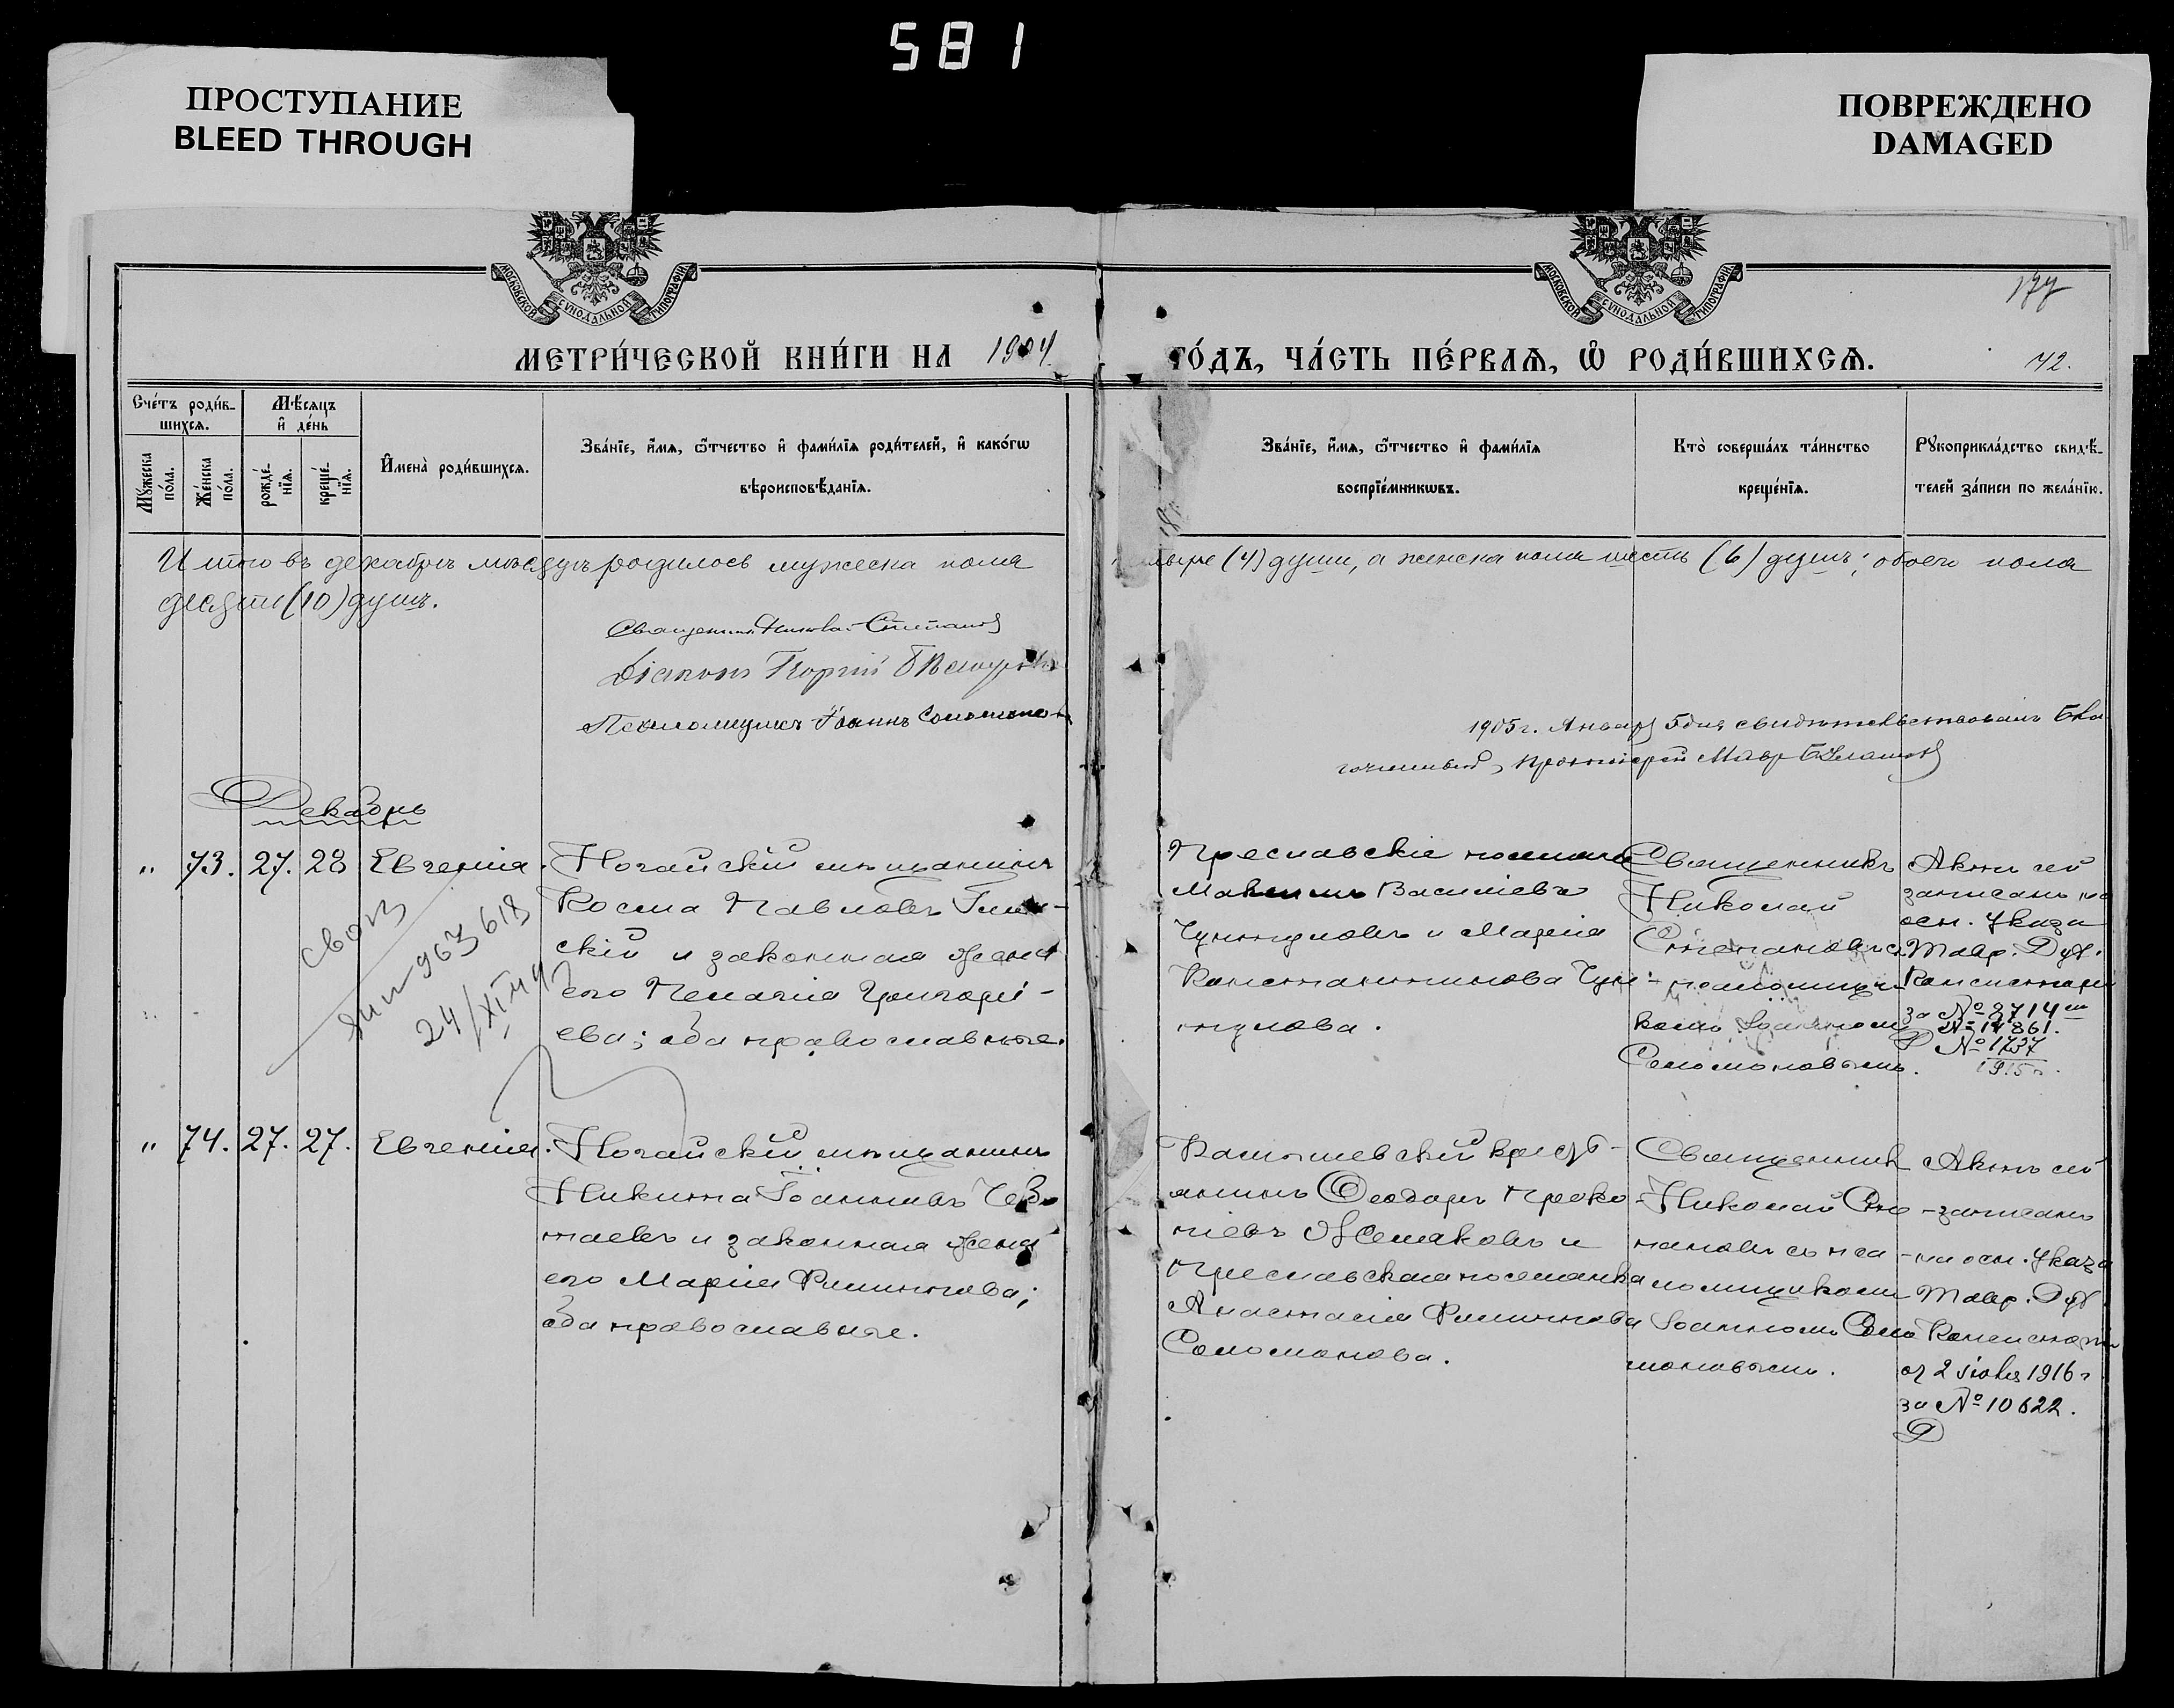 581
ПРОСТУПАНИЕ
BLEED THROUGH
ПОВРЕЖДЕНО
DAMAGED
МОСКОВСКОЙ СѴНОДАЛЬНОЙ ТИПОГРАФІИ
МОСКОВСКОЙ СѴНОДАЛЬНОЙ ТИПОГРАФІИ
МЕТРИ́ЧЕСКОЙ КНИ́ГИ НА 1904
ГО́ДЪ, ЧА́СТЬ ПЕ́РВАѦ, Ѽ РОДИ́ВШИХСѦ.
72.
Сче́тъ роди́в-
шихсѧ.
Мѣ́сѧцъ
и҆ де́нь
Мꙋ́жеска
по́ла.
Же́нска
по́ла.
рожде́-
нїѧ.
креще́-
нїѧ.
И҆мена̀ роди́вшихсѧ.
Зва́нїе, и҆́мѧ, ѻ҆́тчество и҆ фами́лїѧ роди́телей, и҆ како́гѡ
вѣроисповѣ́данїѧ.
Зва́нїе, и҆́мѧ, ѻ҆́тчество и҆ фами́лїѧ
воспрїе́мникѡвъ.
Кто̀ соверша́лъ та́инство
креще́нїѧ.
Рꙋкоприкла́дство свидѣ́-
телей за́писи по жела́нїю.
Итого въ декабрѣ мѣсяцѣ родилось мужеска пола
четыре (4) души, а женска пола шесть (6) душъ; обоего пола
десять (10) душъ.
Священникъ Николай Степановъ
Діаконъ Георгій
Псаломщикъ Іоаннъ Соломоновъ
1905 г. Января 5 дня свидѣтельствовалъ Бла
гочинный, протоіерей Мавр
Декабрь
" 73. 27. 28 Евгенія.
Ногайскій мѣщанинъ
Косма Павловъ
скій и законная жена
его Пелагія Григорі-
ева; оба православные.
Преславскіе поселяне
Максимъ Васильевъ
Чунтуловъ и Марія
Константинова Чун-
тулова.
Священникъ
Николай
Степановъ съ
псаломщи-
комъ Іоанномъ
Соломоновымъ.
Актъ сей
записанъ на
осн. Указа
Тавр. Дух.
Консисторіи
за № 8714
№ 14861.
№ 1737
1915 г.
963618
24/XI
" 74. 27. 27. Евгенія.
Ногайскій мѣщанинъ
Никита Іоанновъ Чев
таевъ и законная жена
его Марія Филиппова;
оба православные.
Ѳеодоръ Проко-
піевъ Жемаковъ и
Преславская поселянка
Анастасія Филиппова
Соломонова.
Священникъ
Николай Сте-
пановъ съ пса-
ломщикомъ
Іоанномъ Соло
моновымъ.
Актъ сей
записанъ
на осн. Указа
Тавр. Дух.
Консисторіи
от 2 іюля 1916 г
за № 10622.